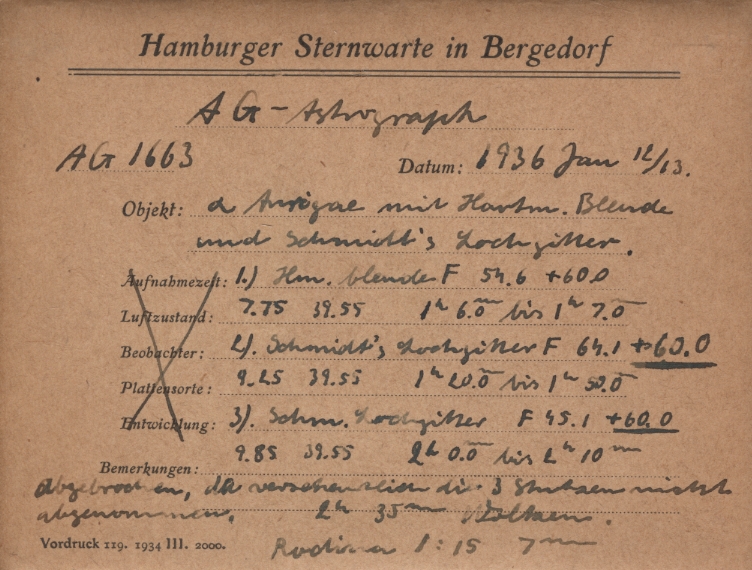 Hamburger Sternwarte in Bergedorf
AG-Astrograph
AG 1663 Datum: 1936 Jan 12/13.
Objekt: α Aurigae mit Hartm. Blende
und Schmidt's Lochgitter.
Aufnahmezeit: 1.) Hm. blende F 54.6 +60.0
Luftzustand: 7.75 39.55 1h 6.0m bis 1h 7.0m
Beobachter: 2). Schmidt's Lochgitter F 64.1 +60.0
Plattensorte: 9.25 39.55 1h 20.0 bis 1h 50.0
Entwicklung: 3). Schm. Lochgitter F 45.1 +60.0
9.85 39.55 2h 0.0m bis 2h 10m
Bemerkungen:
abgebrochen, da versehentlich die 3 nicht
abgenommen. 2h 35m Wolken.
Vordruck 119. 1934 III. 2000. Rodinal 1:15 7m